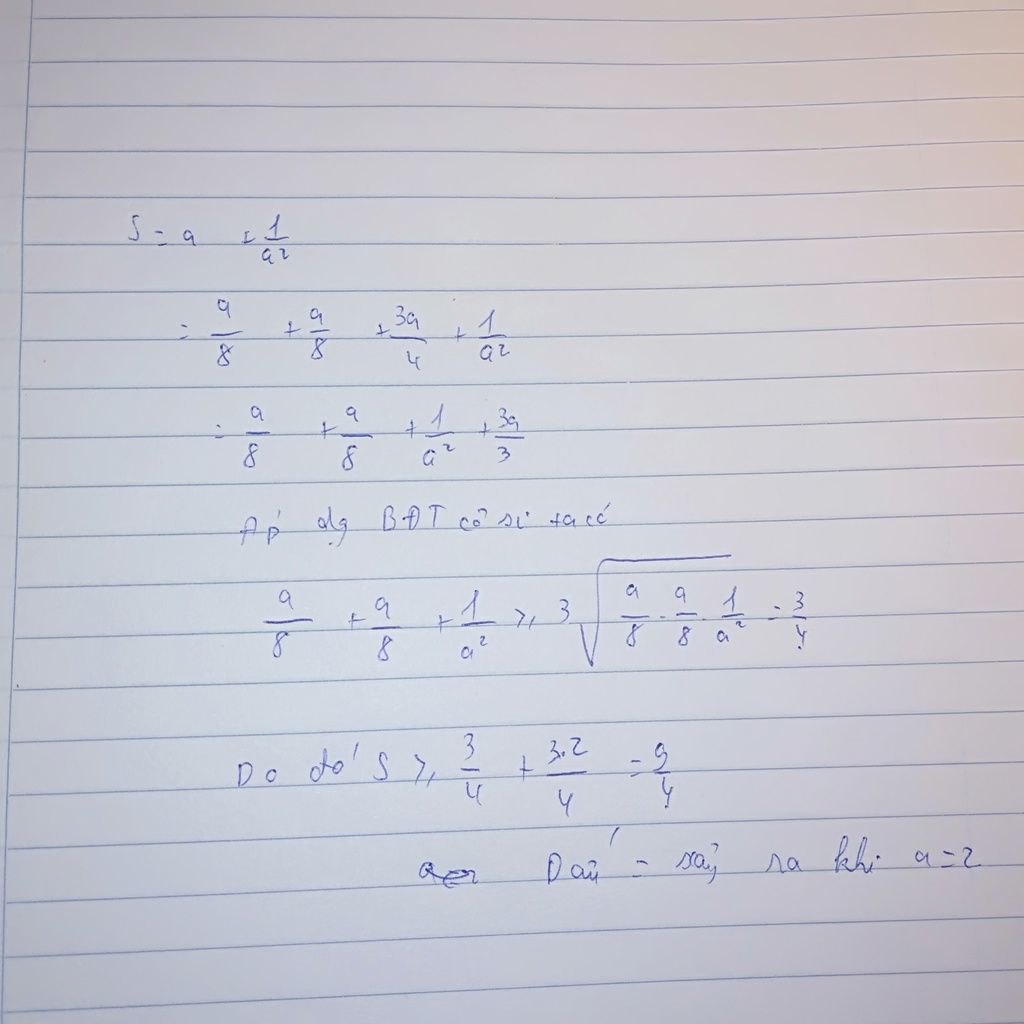 S = a + 1/a²
= a/8 + a/8 + 3a/4 + 1/a²
= a/8 + a/8 + 1/a² + 3a/3
Áp dg BĐT cô si ta có
a/8 + a/8 + 1/a² ≥ 3√(a/8 . a/8 . 1/a²) = 3/4
Do đó S ≥ 3/4 + 3.2/4 = 9/4
Dấu = xảy ra khi a = 2